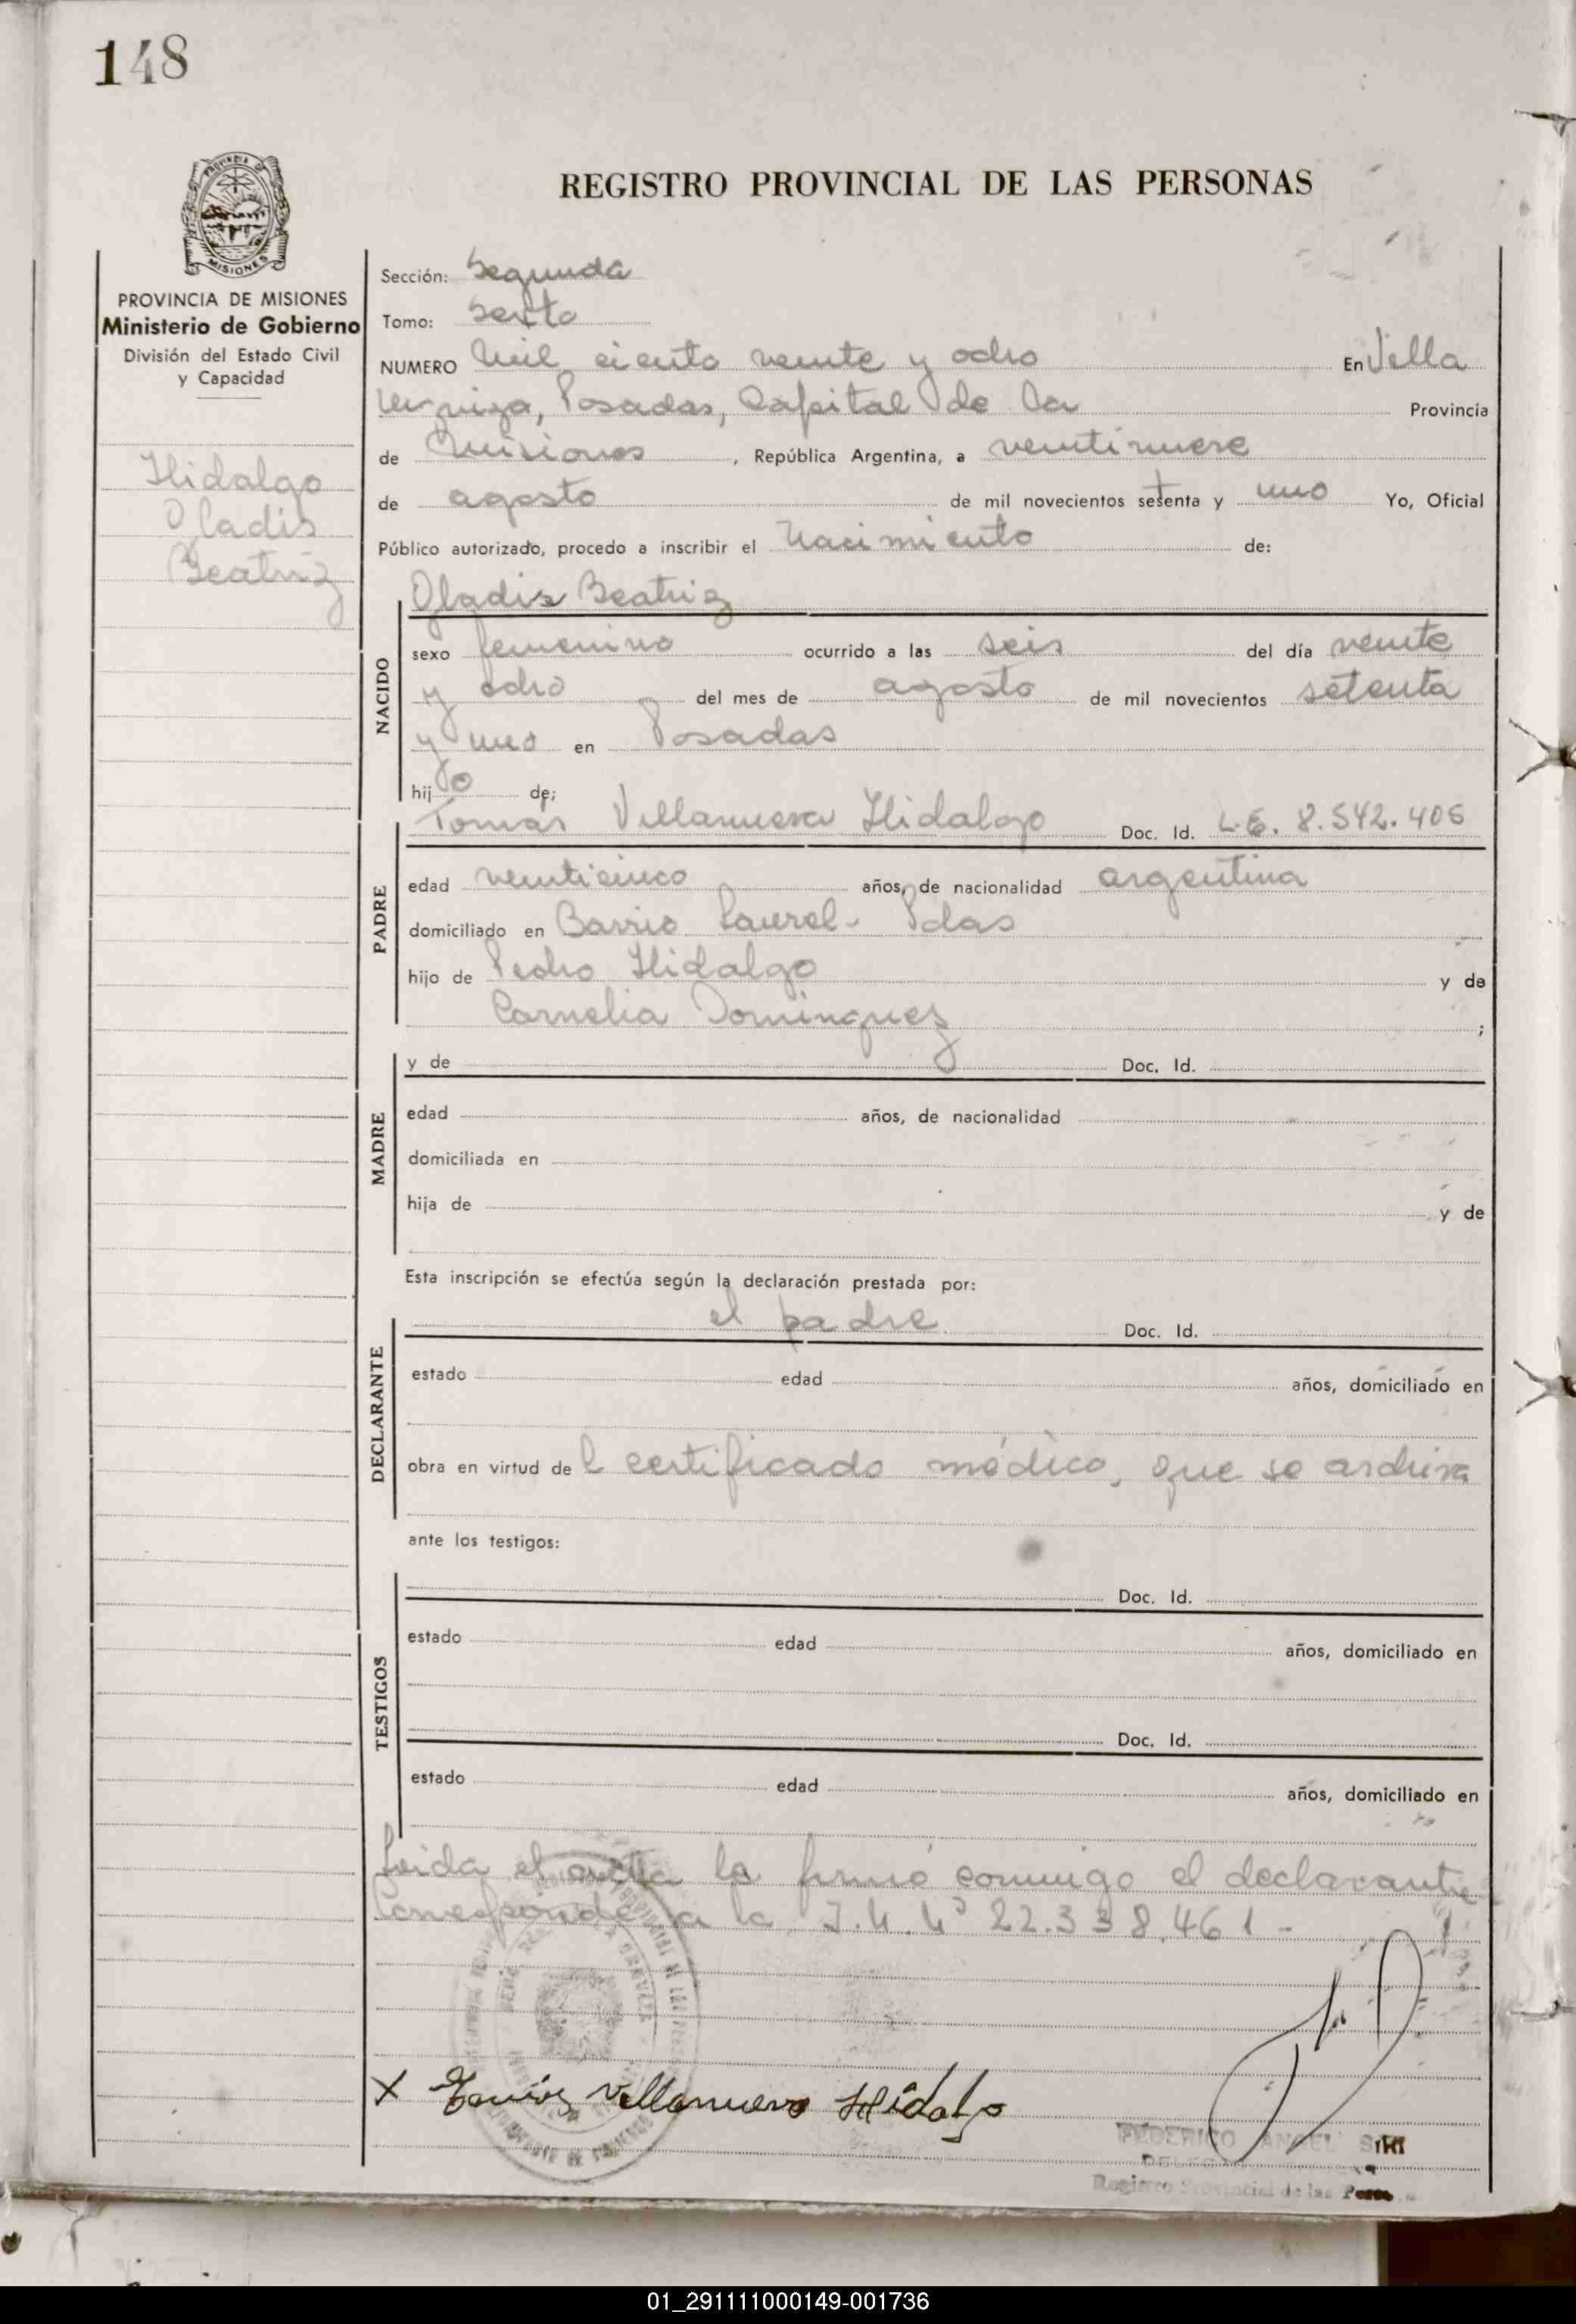 148
REGISTRO PROVINCIAL DE LAS PERSONAS
MISIONES
PROVINCIA DE MISIONES
Ministerio de Gobierno
División del Estado Civil
y Capacidad
Hidalgo
Gladis
Beatriz
Sección: Segunda
Tomo: Sexto
NUMERO Mil ciento veinte y ocho En Villa
Urquiza, Posadas, Capital de la Provincia
de Misiones, República Argentina, a veintinueve
de agosto de mil novecientos setenta y uno Yo, Oficial
Público autorizado, procedo a inscribir el Nacimiento de:
Gladis Beatriz
NACIDO
sexo femenino ocurrido a las seis del día veinte
y ocho del mes de agosto de mil novecientos setenta
y uno en Posadas
hijo de;
Tomás Villanueva Hidalgo Doc. Id. L.E. 8.542.406
PADRE
edad veinticinco años, de nacionalidad argentina
domiciliado en Barrio Laurel - Pdas
hijo de Pedro Hidalgo y de
Carnelia Dominguez ;
MADRE
y de Doc. Id.
edad años, de nacionalidad
domiciliada en
hija de y de
Esta inscripción se efectúa según la declaración prestada por:
el padre Doc. Id.
DECLARANTE
estado edad años, domiciliado en
obra en virtud del certificado médico, que se archiva
ante los testigos:
TESTIGOS
Doc. Id.
estado edad años, domiciliado en
Doc. Id.
estado edad años, domiciliado en
Leida el acta la firmó conmigo el declarante
Corresponde a la I.N.Nº 22.338.461 -
X Tomás Villanueva Hidalgo
FEDERICO ANGEL SIRI
Registro Provincial de las Perso
01_291111000149-001736